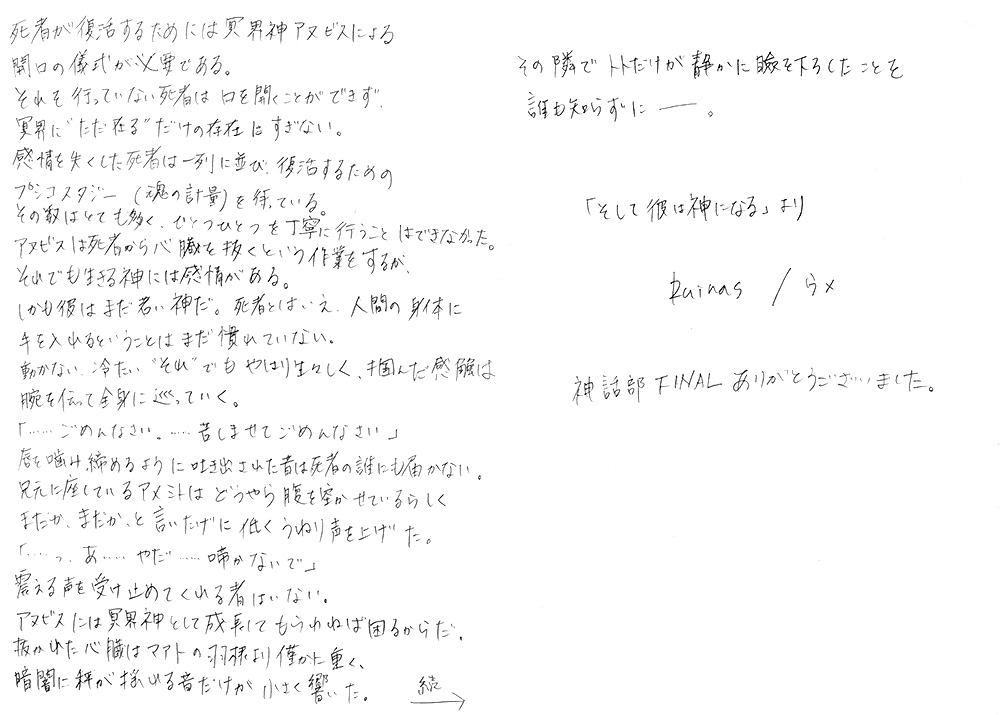 死者が復活するためには冥界神アヌビスによる
開口の儀式が必要である。
それを行っていない死者は口を開くことができず、
冥界に“ただ在る”だけの存在にすぎない。
感情を失くした死者は一列に並び、復活するための
プシコスタジー(魂の計量)を待っている。
その数はとても多く、ひとつひとつを丁寧に行うことはできなかった。
アヌビスは死者から心臓を抜くという作業をするが、
それでも生きる神には感情がある。
しかも彼はまだ若い神だ。死者とはいえ、人間の身体に
手を入れるということはまだ慣れていない。
動かない、冷たい“それ”でもやはり生々しく、掴んだ感触は
腕を伝って全身に巡っていく。
「……ごめんなさい。……苦しませてごめんなさい」
唇を噛み締めるように吐き出された音は死者の誰にも届かない。
足元に座しているアメミトはどうやら腹を空かせているらしく
まだか、まだか、と言いたげに低くうねり声を上げた。
「……っ、あ……やだ……啼かないで」
震える声を受け止めてくれる者はいない。
アヌビスには冥界神として成長してもらわねば困るからだ。
抜かれた心臓はマアトの羽根より僅かに重く、
暗闇に秤が揺れる音だけが小さく響いた。
続
その隣でトトだけが静かに瞼を下ろしたことを
誰も知らずに――。
「そして彼は神になる」より
Ruinas / らメ
神話部 FINAL ありがとうございました。